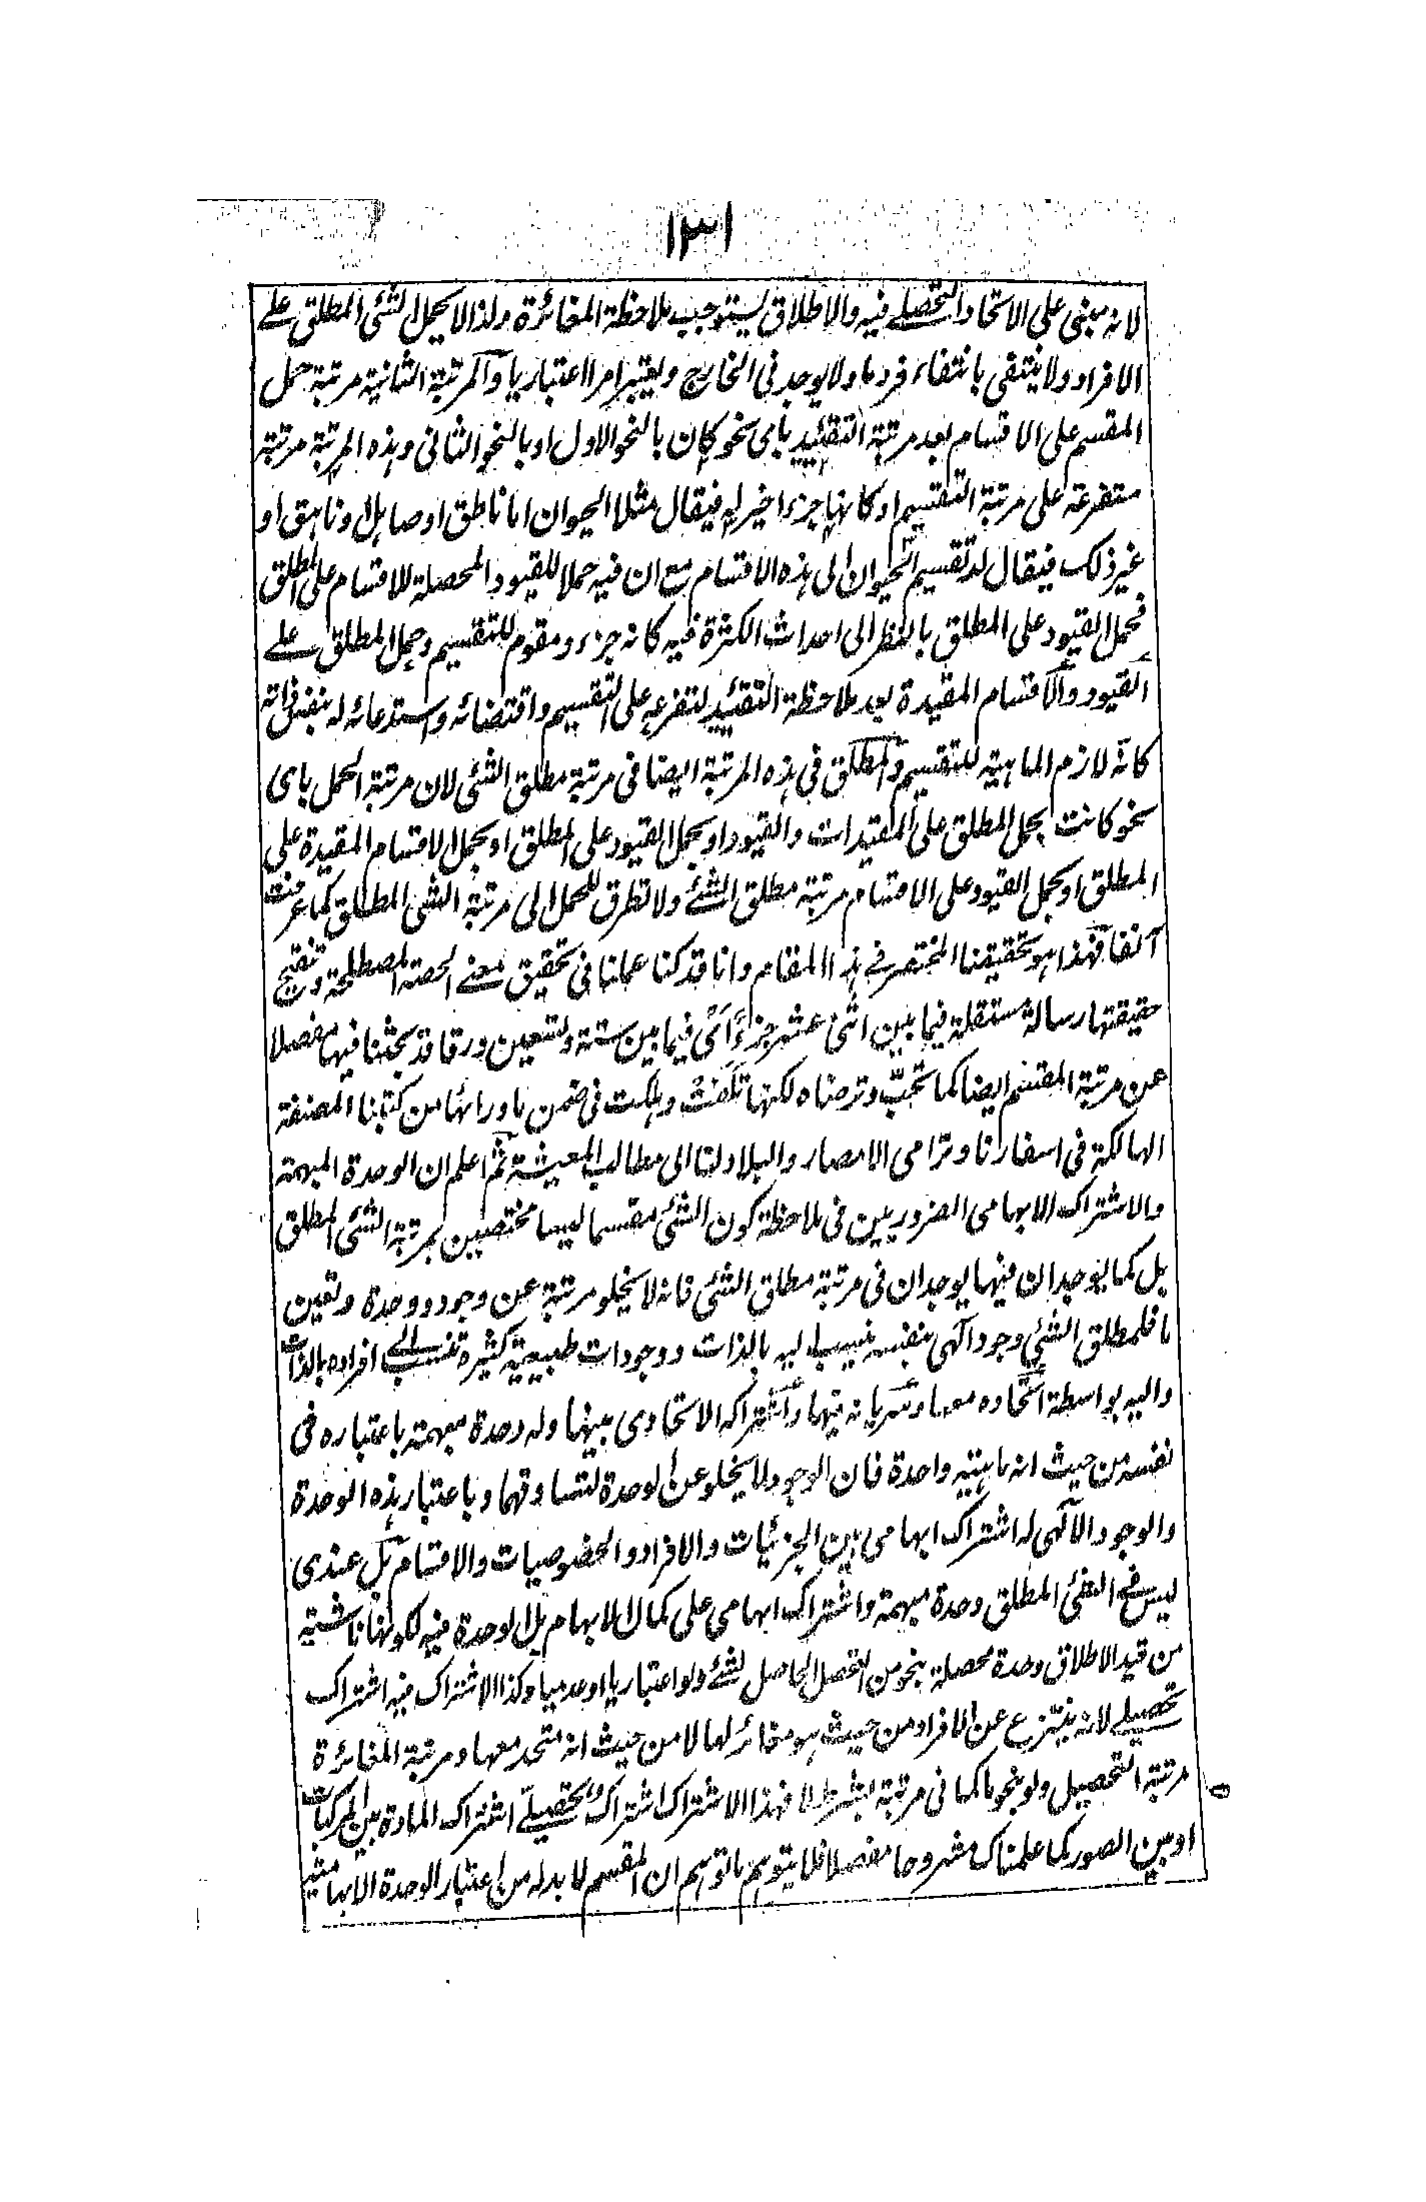 ١٣١
لانه مبنى على الاتحاد التحصلے فيه والاطلاق يستوجب ملاحظة المغائرة ولذا لا يحمل الشئ المطلق علے
الافراد ولا ينتفى بانتفاء فرد ما ولا يوجد فى الخارج ويعتبر امرا اعتباريا والمرتبة الثانية مرتبة حمل
المقسم على الاقسام بعد مرتبة التقئيد باى نحو كان بالنحو الاول او بالنحو الثانى وهذه المرتبة مرتبة
متفرعة على مرتبة التقسيم او كانها جزء اخير له فيقال مثلا الحيوان اما ناطق او صاهل او ناهق او
غير ذلك فيقال له تقسيم الحيوان الى هذه الاقسام مع ان فيه حملا للقيود المحصلة للاقسام على المطلق
فحمل القيود على المطلق بالنظر الى احداث الكثرة فيه كانه جزء ومقوم للتقسيم وحمل المطلق علے
القيود والاقسام المقيدة بعد ملاحظة التقئيد لتفرعه على التقسيم واقتضائه واستدعائه له بنفس ذاته
كانه لازم الماهية للتقسيم والمطلق فى هذه المرتبة ايضا فى مرتبة مطلق الشئ لان مرتبة الحمل باى
نحو كانت بحمل المطلق على المقيدات والقيود او بحمل القيود على المطلق او بحمل الاقسام المقيدة على
المطلق او بحمل القيود على الاقسام مرتبة مطلق الشئ ولا تطرق للحمل الى مرتبة الشئ المطلق كما عرفت
آنفا فهذا هو تحقيقنا المختصر فے هذا المقام وانا قد كنا عملنا فى تحقيق معنے الحصة المصطلحة وتنقيح
حقيقتها رسالة مستقلة فيما بين اثنى عشر جزءا اى فيما بين ستة وتسعين ورقا قد بحثنا فيها مفصلا
عن مرتبة المقسم ايضا كما تحب وترضاه لكنها تلفت وهلكت فى ضمن ما ورائها من كتبنا المصنفة
الهالكة فى اسفارنا وترامى الامصار والبلاد لنا الى مطالب المعيشة ثم اعلم ان الوحدة المبهمة
والاشتراك الابهامى الضروريين فى ملاحظة كون الشئ مقسما ليسا مختصين بمرتبة الشئ المطلق
بل كما يوجدان فيها يوجدان فى مرتبة مطلق الشئ فانه لا يخلو مرتبة عن وجود ووحدة وتعين
ما فلمطلق الشئ وجود آلهى بنفسه ينسب اليه بالذات ووجودات طبيعية كثيرة تنسب الے افراده بالذات
واليه بواسطة اتحاده معها وسريانه فيها واشتراكه الاتحادى بينها وله وحدة مبهمة باعتباره فى
نفسه من حيث انه ماهية واحدة فان الوجود لا يخلو عن الوحدة لتساوقهما وباعتبار هذه الوحدة
والوجود الآلهى له اشتراك ابهامى بين الجزئيات والافراد والخصوصيات والاقسام بل عندى
ليس فے الشئ المطلق وحدة مبهمة واشتراك ابهامى على كمال الابهام بل الوحدة فيه لكونها ناشية
من قيد الاطلاق وحدة محصلة بنحو من التحصل الحاصل لشئ ولو اعتباريا او عدميا وكذا الاشتراك فيه اشتراك
تحصيلے لانه ينتزع عن الافراد من حيث هو مغائر لها لا من حيث انه متحد معها ومرتبة المغائرة
مرتبة التحصيل ولو بنحو ما كما فى مرتبة بشرط لا فهذا الاشتراك اشتراك تحصيلے اشتراك المادة بين المركبات
او بين الصور كما علمناك مشروحا مفصلا فلا يتوهم بالتوهم ان المقسم لا بد له من اعتبار الوحدة الابهامية